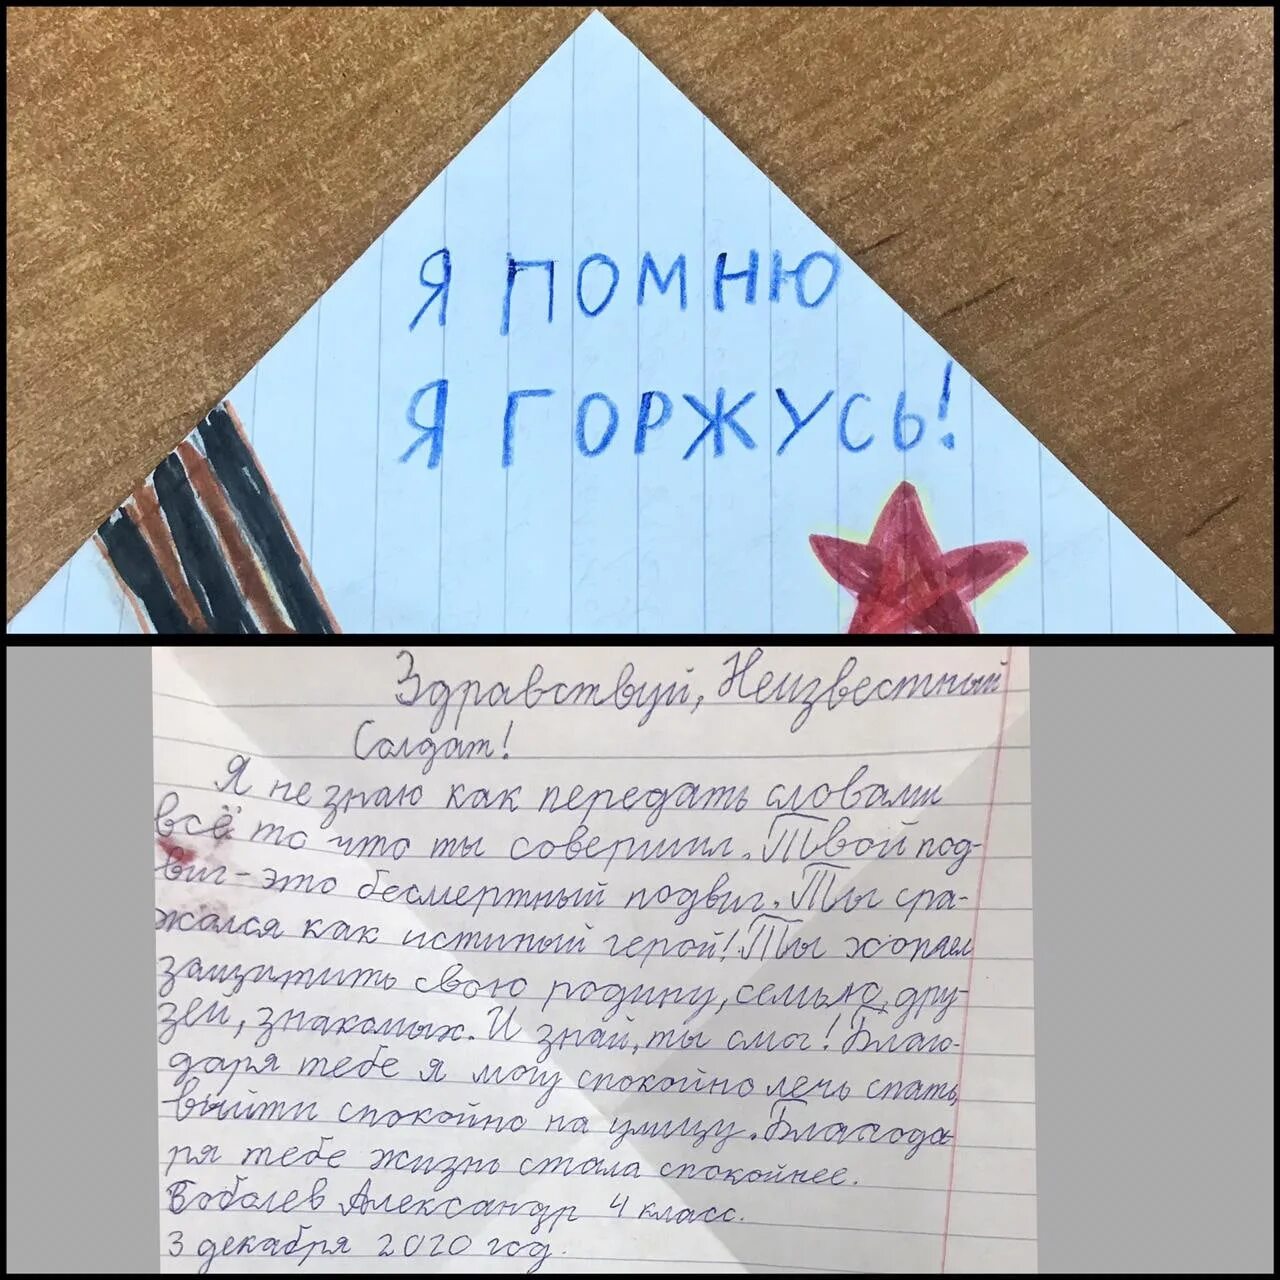 Я ПОМНЮ
Я ГОРЖУСЬ!
Здравствуй, Неизвестный
Солдат!
Я не знаю как передать словами
всё то что ты совершил. Твой под-
виг - это бесмертный подвиг. Ты сра-
жался как истиный герой! Ты хотел
защитить свою родину, семью, дру-
зей, знакомых. И знай, ты смог! Благо-
даря тебе я могу спокойно лечь спать,
выйти спокойно на улицу. Благода-
ря тебе жизнь стала спокойнее.
Боболев Александр 4 класс.
3 декабря 2020 год.